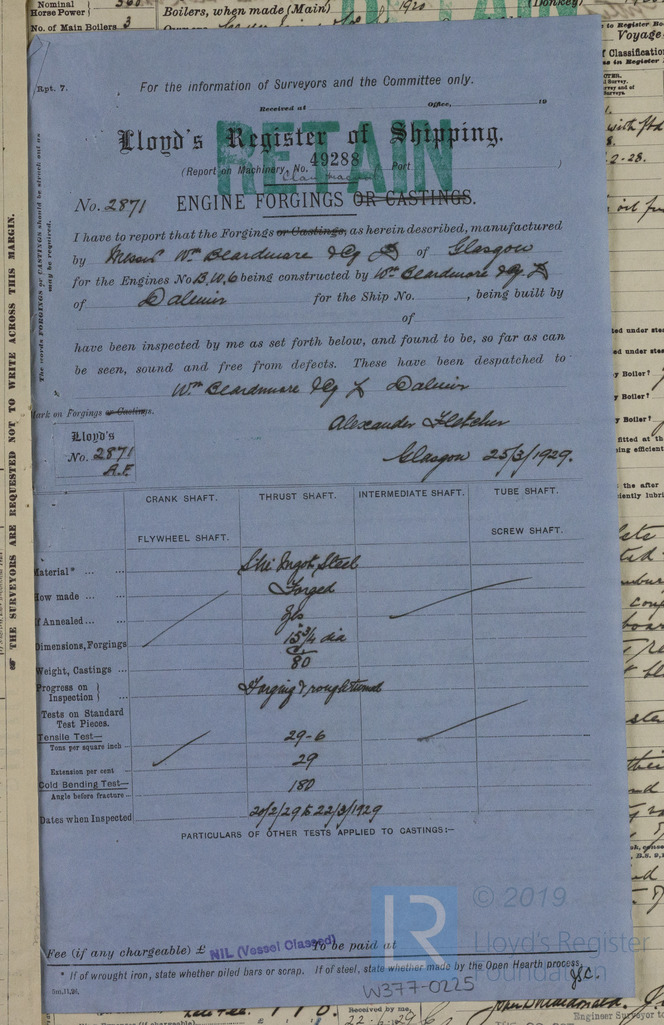 Nominal
Horse Power
Boilers, when made (Main) 1920 (Donkey)
No. of Main Boilers 3
RETAIN
to Register Bo
Voyage
f Classification
as in Register
Rpt. 7.
For the information of Surveyors and the Committee only.
Received at Office, 19
Lloyd's Register of Shipping.
RETAIN
(Report on Machinery, No. 49288 Port )
No. 2871 ENGINE FORGINGS OR CASTINGS.
I have to report that the Forgings or Castings, as herein described, manufactured
by Messrs Wm Beardmore & Co Ld of Glasgow
for the Engines No B.W.6 being constructed by Wm Beardmore & Co Ld
of Dalmuir for the Ship No. , being built by
of
have been inspected by me as set forth below, and found to be, so far as can
be seen, sound and free from defects. These have been despatched to
Wm Beardmore & Co Ld Dalmuir
Mark on Forgings or Castings.
Alexander Fletcher
Lloyd's
No. 2871
A.F.
Glasgow 25/3/1929.
The words FORGINGS or CASTINGS should be struck out as
may be required.
☞ THE SURVEYORS ARE REQUESTED NOT TO WRITE ACROSS THIS MARGIN.
CRANK SHAFT. THRUST SHAFT. INTERMEDIATE SHAFT. TUBE SHAFT.
FLYWHEEL SHAFT. SCREW SHAFT.
Material* ... ... Ingot Steel
How made ... ... Forged
If Annealed ... ... Yes
Dimensions, Forgings 15 3/4 dia
Weight, Castings ... C. 80
Progress on
Inspection } ... Forging & rough turned
Tests on Standard
Test Pieces.
Tensile Test—
Tons per square inch 29-6
Extension per cent 29
Cold Bending Test—
Angle before fracture 180
Dates when Inspected 20/2/29 to 22/3/1929
PARTICULARS OF OTHER TESTS APPLIED TO CASTINGS:—
Fee (if any chargeable) £ NIL (Vessel Classed) To be paid at
* If of wrought iron, state whether piled bars or scrap. If of steel, state whether made by the Open Hearth process.
J.C.
W377-0225
LR
© 2019
Lloyd's Register
Foundation
John D Macdonald.
Received by me
Engineer Surveyor to